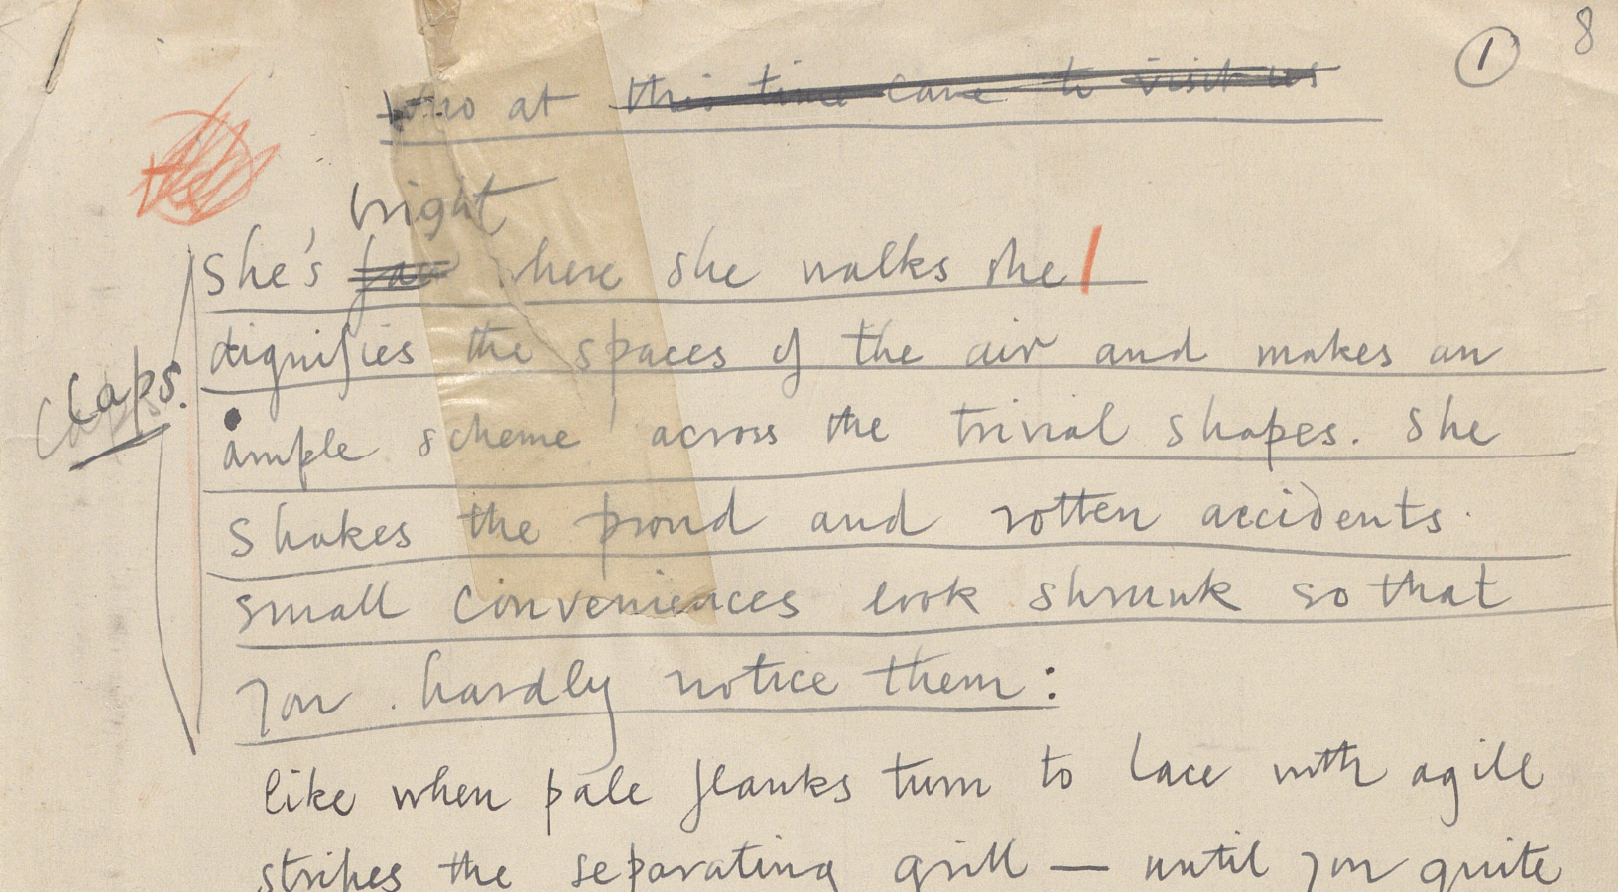 8
1
who at this time came to visit us
bright
She's fair where she walks she
dignifies the spaces of the air and makes an
Caps.
ample scheme across the trivial shapes. She
shakes the proud and rotten accidents.
small conveniences look shrunk so that
you hardly notice them:
like when pale flanks turn to lace with agile
stripes the separating grill — until you quite